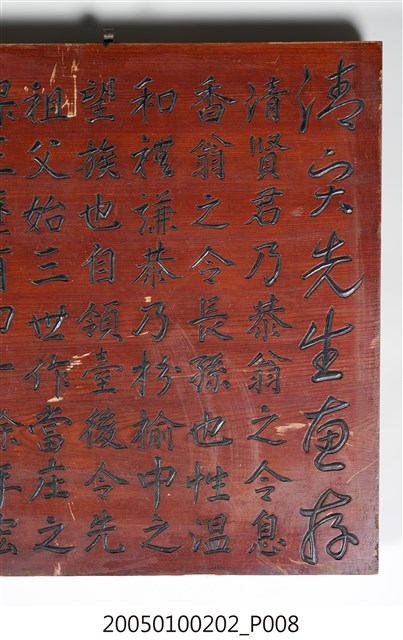 清 先生惠存
清賢君乃恭翁之令息
香翁之令長孫也性溫
和禮謙恭乃枌榆中之
望族也自領臺後令先
祖父始三世作當庄之
保正歷有四十餘年
20050100202_P008